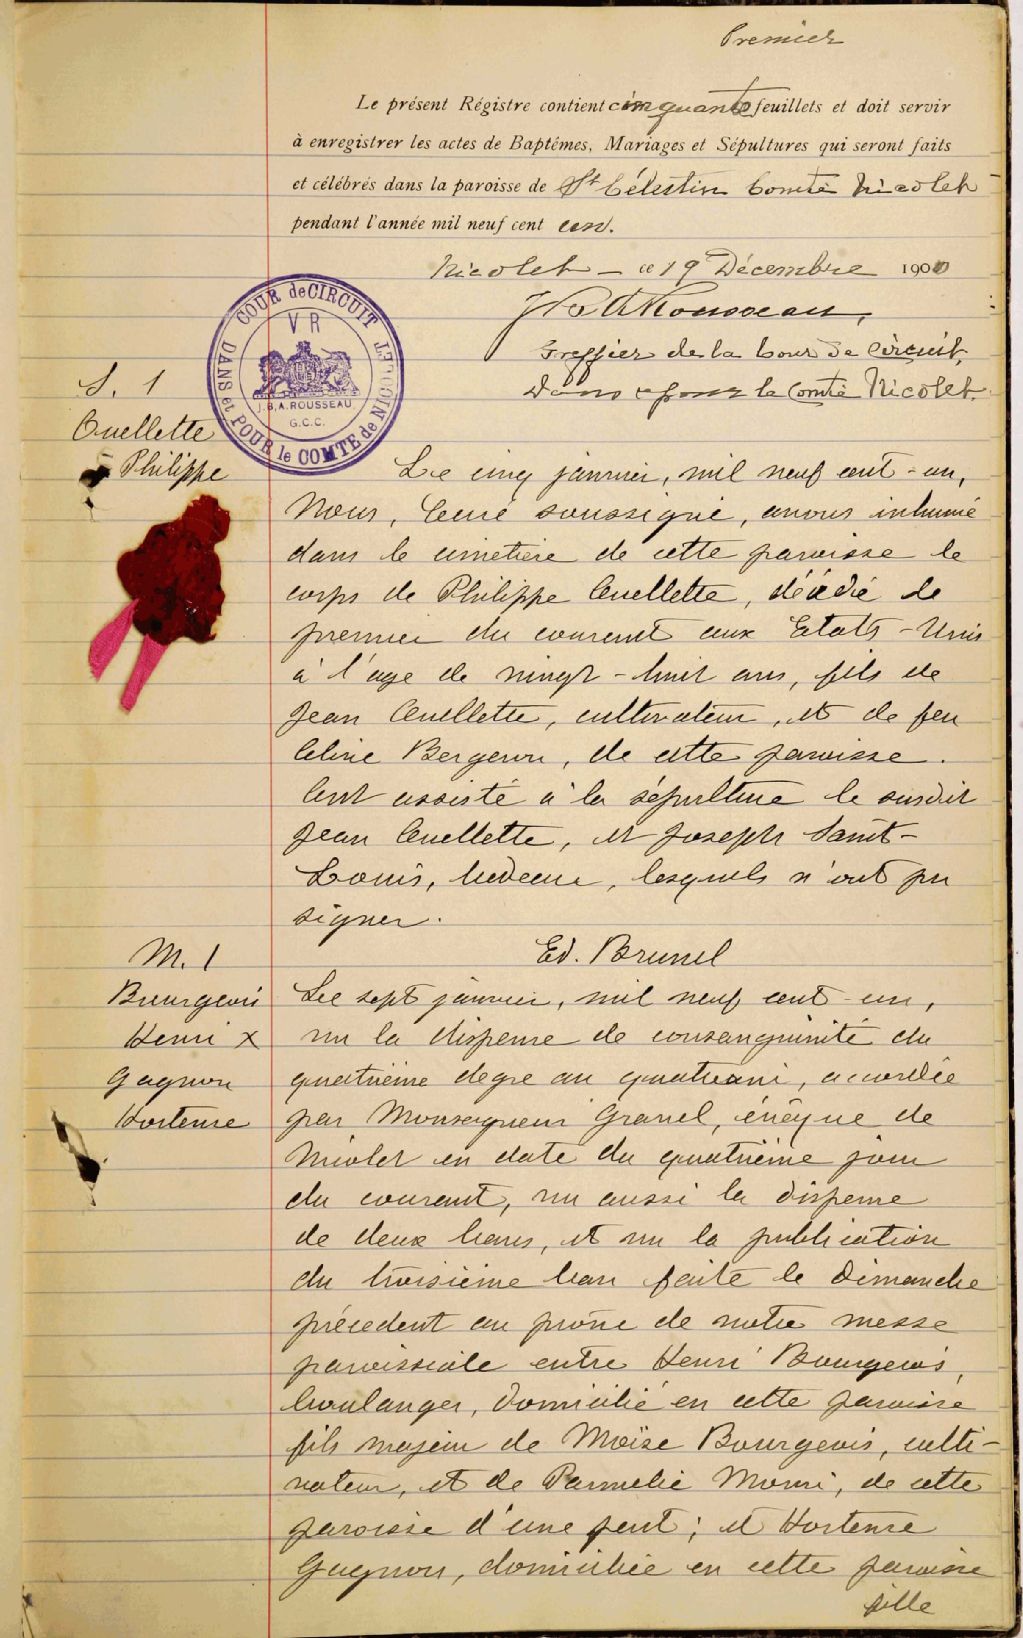 Premier
Le présent Régistre contient cinquante feuillets et doit servir
à enregistrer les actes de Baptêmes, Mariages et Sépultures qui seront faits
et célébrés dans la paroisse de St Célestin Comté Nicolet
pendant l'année mil neuf cent un.
Nicolet – ce 19 Décembre 1900
Rousseau,
Greffier de la Cour de Circuit,
Dans & pour le Comté Nicolet.
COUR de CIRCUIT
DANS et POUR le COMTE de NICOLET
V R
J.B.A. ROUSSEAU
G.C.C.
S. 1
Ouellette
Philippe
Le cinq janvier, mil neuf cent-un,
Nous, Curé soussigné, avons inhumé
dans le cimetière de cette paroisse le
corps de Philippe Ouellette, décédé le
premier du courant aux Etats-Unis
à l'age de vingt-huit ans, fils de
Jean Ouellette, cultivateur, et de feu
Celine Bergeron, de cette paroisse.
Ont assisté à la sépulture le susdit
Jean Ouellette, et Joseph Saint-
Louis, bedeau, lesquels n'ont pu
signer.
Ed. Brunel
M. 1
Bourgeois
Henri x
Gagnon
Hortense
Le sept janvier, mil neuf cent-un,
vu la dispense de consanguinité du
quatrième degré au quatrième, accordée
par Monseigneur Gravel, évêque de
Nicolet en date du quatrième jour
du courant, vu aussi la dispense
de deux bans, et vu la publication
du troisième ban faite le dimanche
précedent au prône de notre messe
paroissiale entre Henri Bourgeois,
boulanger, domicilié en cette paroisse
fils majeur de Moïse Bourgeois, culti-
vateur, et de Parmelie de cette
paroisse d'une part; et Hortense
Gagnon, domiciliée en cette paroisse
fille